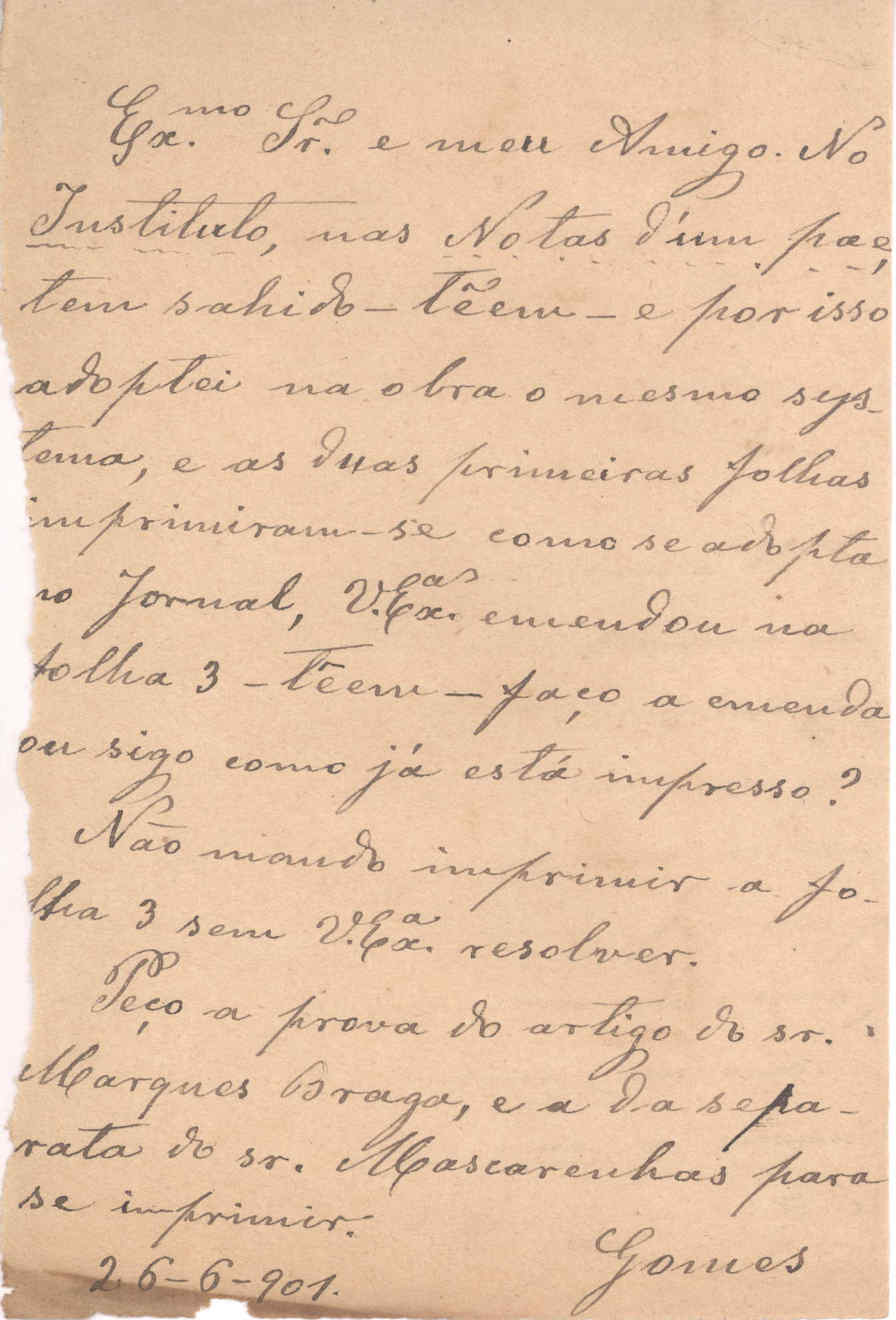 Ex.mo Sr. e meu Amigo. No
Instituto, nas Notas d'um pae,
tem sahido — tẽem — e por isso
adoptei na obra o mesmo sys-
tema, e as duas primeiras folhas
imprimiram-se como se adopta
no Jornal, V.Ex.as emendou na
folha 3 — têem — faço a emenda
ou sigo como já está impresso?
Não mando imprimir a fo-
lha 3 sem V.Ex.a resolver.
Peço a prova do artigo do sr.
Marques Braga, e a da sepa-
rata do sr. Mascarenhas para
se imprimir.
Gomes
26-6-901.